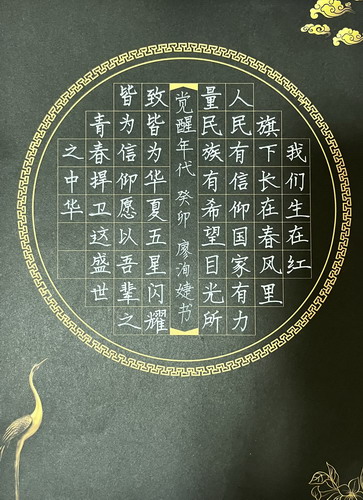 我们生在红
旗下长在春风里
人民有信仰国家有力
量民族有希望目光所
觉醒年代 癸卯 廖洵婕书
致皆为华夏五星闪耀
皆为信仰愿以吾辈之
青春捍卫这盛世
之中华